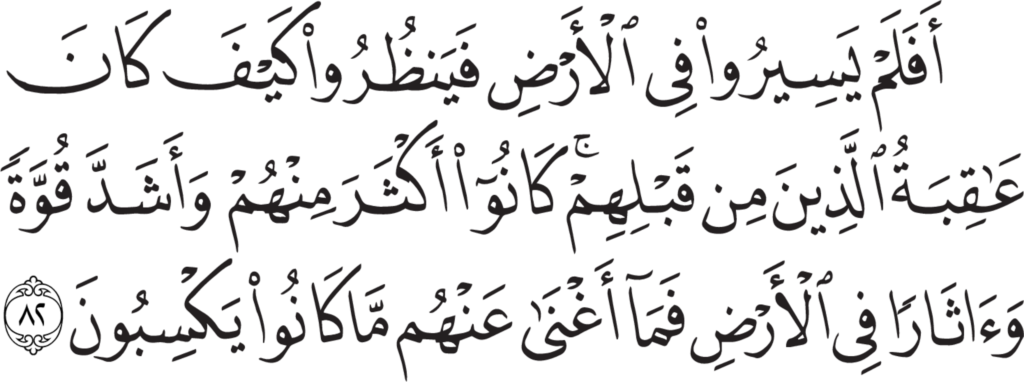 أَفَلَمۡ يَسِيرُواْ فِي ٱلۡأَرۡضِ فَيَنظُرُواْ كَيۡفَ كَانَ
عَٰقِبَةُ ٱلَّذِينَ مِن قَبۡلِهِمۡۚ كَانُوٓاْ أَكۡثَرَ مِنۡهُمۡ وَأَشَدَّ قُوَّةٗ
وَءَاثَارٗا فِي ٱلۡأَرۡضِ فَمَآ أَغۡنَىٰ عَنۡهُم مَّا كَانُواْ يَكۡسِبُونَ ٨٢